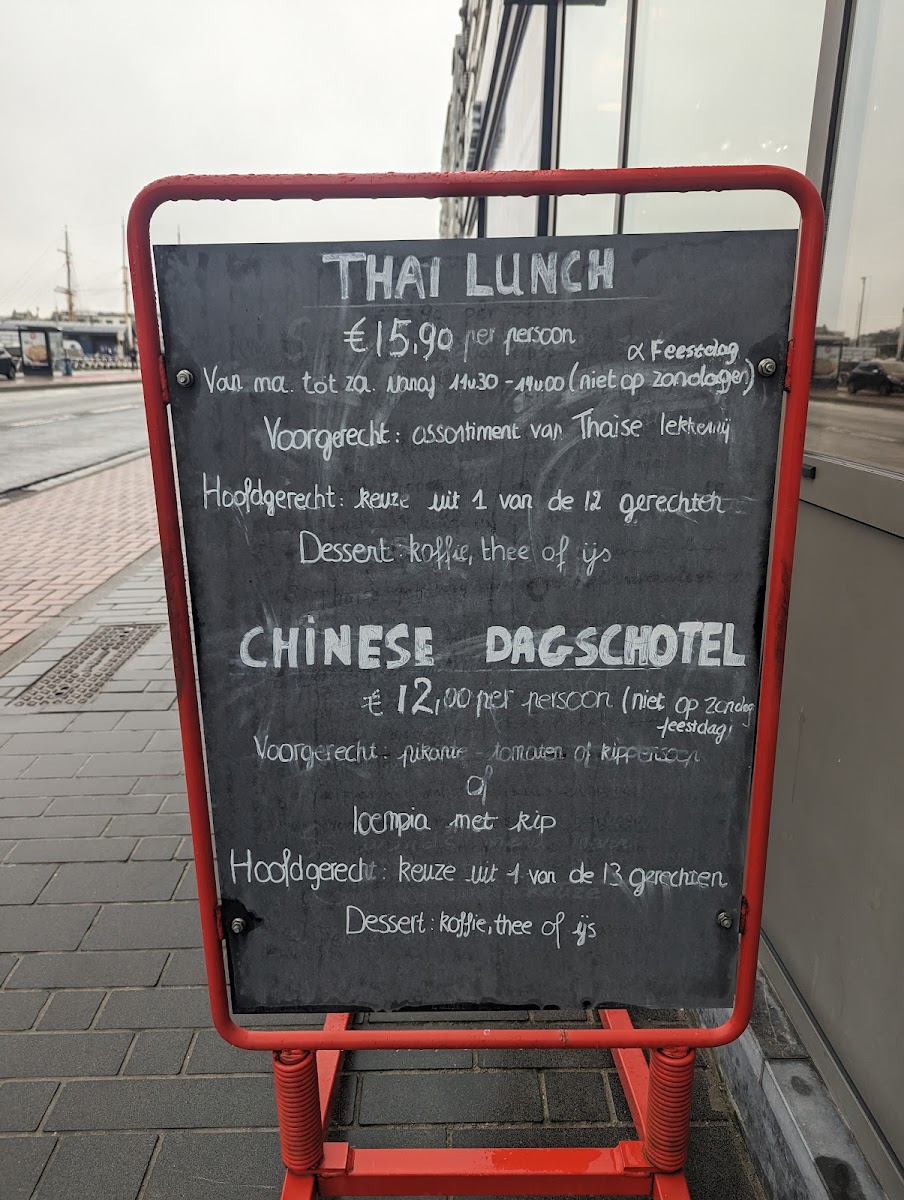 THAI LUNCH
€15,90 per persoon
& Feestdag
Van ma. tot za. vanaf 11u30 - 14u00 (niet op zondagen)
Voorgerecht: assortiment van Thaise lekkernij
Hoofdgerecht: keuze uit 1 van de 12 gerechten
Dessert: koffie, thee of ijs
CHINESE DAGSCHOTEL
€ 12,00 per persoon (niet op zondag
feestdag)
Voorgerecht: pikante - tomaten of kippensoep
of
loempia met kip
Hoofdgerecht: keuze uit 1 van de 13 gerechten
Dessert: koffie, thee of ijs